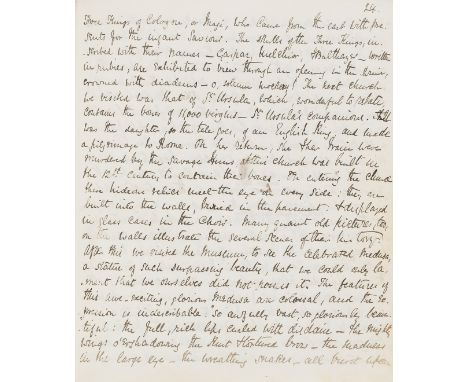 24.
Three Kings of Cologne, or Magi, who came from the east with pre
sents for the infant Saviour. The skulls of the Three Kings, in
scribed with their names – Gaspar, Melchior, & Balthazar – written
in rubies, are exhibited to view through an opening in the shrine,
crowned with diadems – o, solemn mockery! The next church
we visited was that of St Ursula, which, wonderful to relate
contains the bones of 11,000 virgins – St Ursula's companions.
was the daughter, so the tale goes, of an English King, and made
a pilgrimage to Rome. On her return, she & her train were
murdered by the savage Huns & this church was built in
the 12th century to contain the bones. On entering the church
their hideous relics meet the eye on every side: they are
built into the walls, buried in the pavement, & displayed
in glass cases in the choir. Many quaint old pictures, too,
on the walls illustrate the several scenes of their history.
After this we visited the Museum, to see the celebrated Medusa,
a statue of such surpassing beauty, that we could only la
ment that we ourselves did not possess it. The features of
this awe-exciting, glorious Medusa are colossal, and the ex
pression is indescribable: so awfully vast, so gloriously beau
tiful: the full, rich lips curled with disdain – the mighty
wings o'ershadowing the knit & tortured brow – the madness
in the large eye – the wreathing snakes – all burst upon